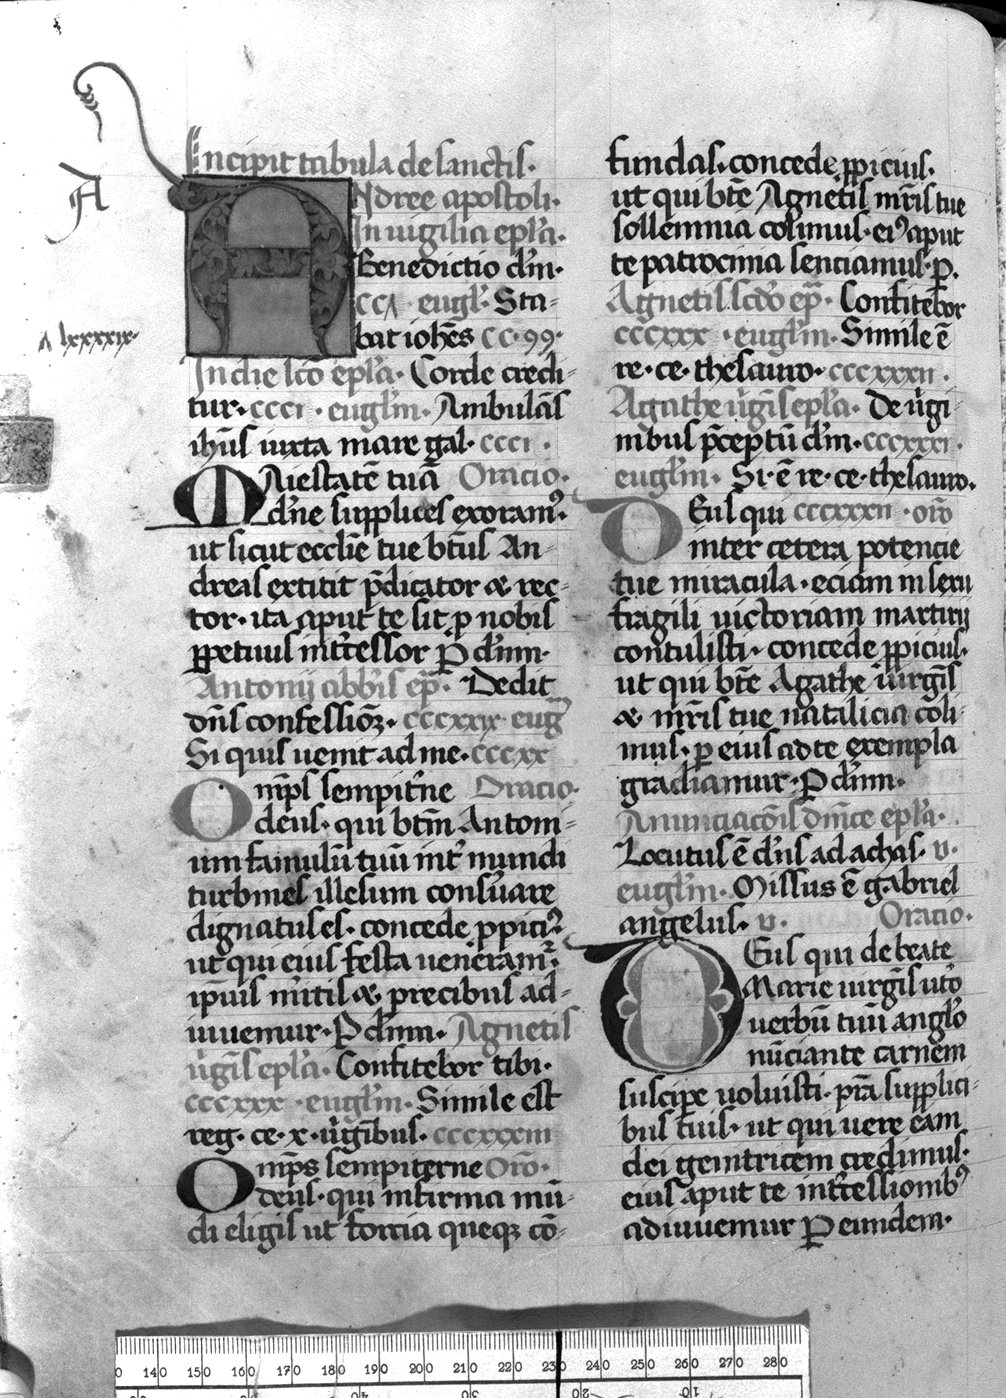 Incipit tabula de sanctis·
A
Ndree apostoli·
In uigilia epl̃a·
Benedictio dñi·
eugl̃· Sta-
bat ioh̃es CC·99·
lxxxxix·
In die sc̃o epl̃a· Corde credi-
tur·ccci· eugl̃m· Ambulãs
ih̃us iuxta mare gal·ccci·
MAiestatẽ tuã Oracio·
dñe supplices exoramꝰ·
ut sicut ecclẽe tue bt̃us An-
dreas extitit p̃dicator ⁊ rec-
tor· ita aput te sit ꝓ nobis
ꝑpetuus int̃cessor P dñm·
Antonij abb̃is ep̃· Dedit
dñs confessioꝫ· cccxxix·eug̃
Si quis uenit ad me·cccxx
Omp̃s sempit̃ne Oracio·
deus· qui bt̃m Antoni-
um famulũ tuũ int̃ mundi
turbines illesum consũare
dignatus es· concede ꝓpiciꝰ·
ut qui eius festa ueneramr̃·
ip̃ius m̃itis ⁊ precibus ad-
iuuemur· P dñm· Agnetis
ũgĩs epl̃a· Confitebor tibi·
cccxxx·eugl̃m· Simile est
reg·ce·x·ũgĩbus·cccxxxiii
Omp̃s sempiterne Orõ·
deus· qui infirma mũ-
di eligis ut forcia queqꝫ cõ-
fundas·concede ꝓpicius·
ut qui bt̃e Agnetis mr̃is tue
sollemnia colimus·eiꝰ aput
te patrocinia senciamus·P.
Agnetis scdõ ep̃· Confitebor
cccxxx·eugl̃m· Simile ẽ
re·ce·thesauro·cccxxxii·
Agathe ũgĩs epl̃a· De ũgi-
nibus p̃ceptũ dñi·cccxxxi·
eugl̃m· Si·ẽ re·ce·thesauro·
DEus qui cccxxxii·orõ
inter cetera potencie
tue miracula·eciam in sexu
fragili uictoriam martirij
contulisti· concede ꝓpicius·
ut qui bt̃e Agathe uirgĩs
⁊ mr̃is tue natalicia coli-
mus· ꝑ eius ad te exempla
gradiamur· P dñm·
Anunciacõis dñice epl̃a·
Locutus ẽ dñs ad achas· v·
eugl̃m· Missus ẽ gabriel
angelus· v· Oracio·
DEus qui de beate
Marie uirgĩs utõ
uerbũ tuũ anglõ
nũciante carnem
suscipe uoluisti·pr̃a supplici-
bus tuis· ut qui uere eam
dei genitricem credimus·
eius aput te int̃cessionibꝰ
adiuuemur P eundem·
140 150 160 170 180 190 200 210 220 230 240 250 260 270 280